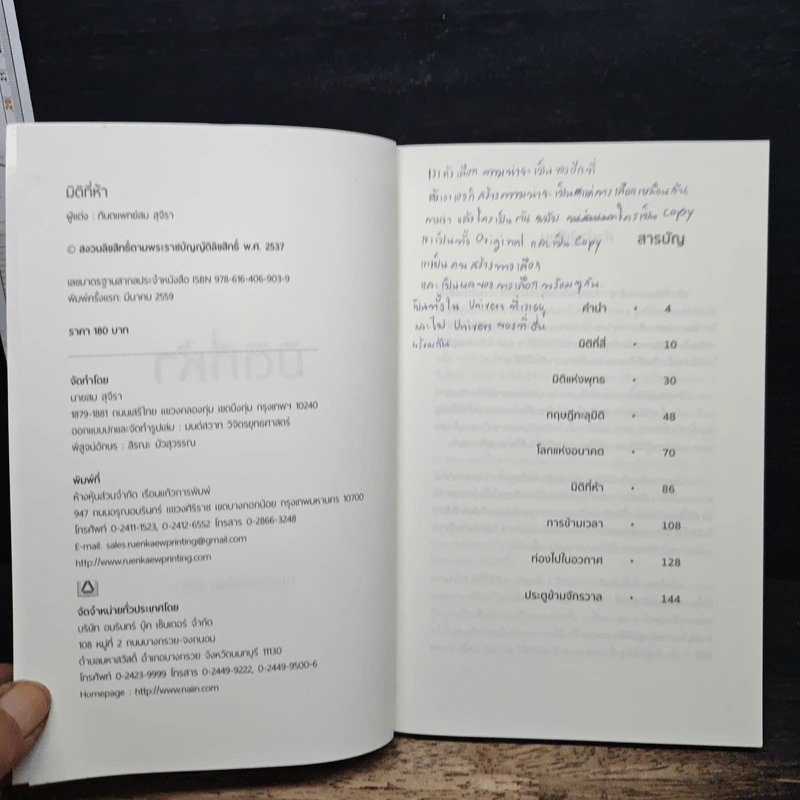 มิติที่ห้า
ผู้แต่ง : ทันตแพทย์สม สุจีรา
© สงวนลิขสิทธิ์ตามพระราชบัญญัติลิขสิทธิ์ พ.ศ. 2537
เลขมาตรฐานสากลประจำหนังสือ ISBN 978-616-406-903-9
พิมพ์ครั้งแรก: มีนาคม 2559
ราคา 180 บาท
จัดทำโดย
นายสม สุจีรา
1879-1881 ถนนเสรีไทย แขวงคลองกุ่ม เขตบึงกุ่ม กรุงเทพฯ 10240
ออกแบบปกและจัดทำรูปเล่ม : มนต์สวาท วิจิตรยุทธศาสตร์
พิสูจน์อักษร : สิรณะ บัวสุวรรณ
พิมพ์ที่
ห้างหุ้นส่วนจำกัด เรือนแก้วการพิมพ์
947 ถนนอรุณอมรินทร์ แขวงศิริราช เขตบางกอกน้อย กรุงเทพมหานคร 10700
โทรศัพท์ 0-2411-1523, 0-2412-6552 โทรสาร 0-2866-3248
E-mail: sales.ruenkaewprinting@gmail.com
http://www.ruenkaewprinting.com
จัดจำหน่ายทั่วประเทศโดย
บริษัท อมรินทร์ บุ๊ค เซ็นเตอร์ จำกัด
108 หมู่ที่ 2 ถนนบางกรวย-จงถนอม
ตำบลมหาสวัสดิ์ อำเภอบางกรวย จังหวัดนนทบุรี 11130
โทรศัพท์ 0-2423-9999 โทรสาร 0-2449-9222, 0-2449-9500-6
Homepage : http://www.naiin.com
Copy
เขาเป็นทั้ง Original และเป็น Copy
เขาเป็นคนสร้างทางเลือก
และเป็นผลของการเลือกพร้อมๆกัน
เป็นทั้งใน Univers ที่เราอยู่
และใน Univers ของที่อื่น
พร้อมกัน
สารบัญ
คำนำ • 4
มิติที่สี่ • 10
มิติแห่งพุทธ • 30
ทฤษฎีทะลุมิติ • 48
โลกแห่งอนาคต • 70
มิติที่ห้า • 86
การข้ามเวลา • 108
ท่องไปในอวกาศ • 128
ประตูข้ามจักรวาล • 144